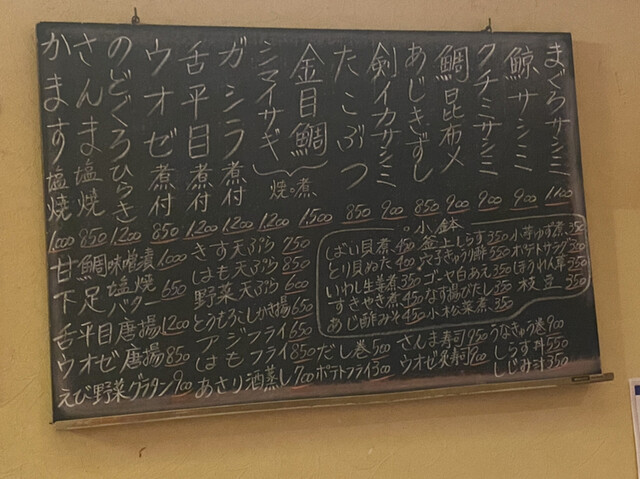 まぐろサシミ 1100
鯨サシミ 900
クチミサシミ 900
鯛昆布〆 900
あじきずし 850
剣イカサシミ 900
たこぶつ 850
金目鯛 1,500
シマイサギ 1,200
焼。煮
ガシラ煮付 1,200
舌平目煮付 1,200
ウオゼ煮付 850
のどぐろひらき 1200
さんま塩焼 850
かます塩焼 1000
甘鯛味噌漬 1000
下足塩焼バター 650
舌平目唐揚 1200
ウオゼ唐揚 850
えび野菜グラタン 900
きす天ぷら 750
はも天ぷら 850
野菜天ぷら 600
とうもろこしかき揚 650
アジフライ 650
はもフライ 850
あさり酒蒸し 700
。小鉢
ばい貝煮 450
とり貝ぬた 400
いわし生姜煮 350
すきやき煮 450
あじ酢みそ 450
釜上しらす 350
穴子きゅうり酢 550
ゴーヤ白あえ 350
なす揚びたし 350
小松菜煮 350
小芋ゆず煮 350
ポテトサラダ
ほうれん草
枝豆 350
だし巻 500
ポテトフライ 300
さんま寿司 950
ウオゼ灸寿司 900
うなきゅう巻 900
しらす丼 550
しじみ汁 350